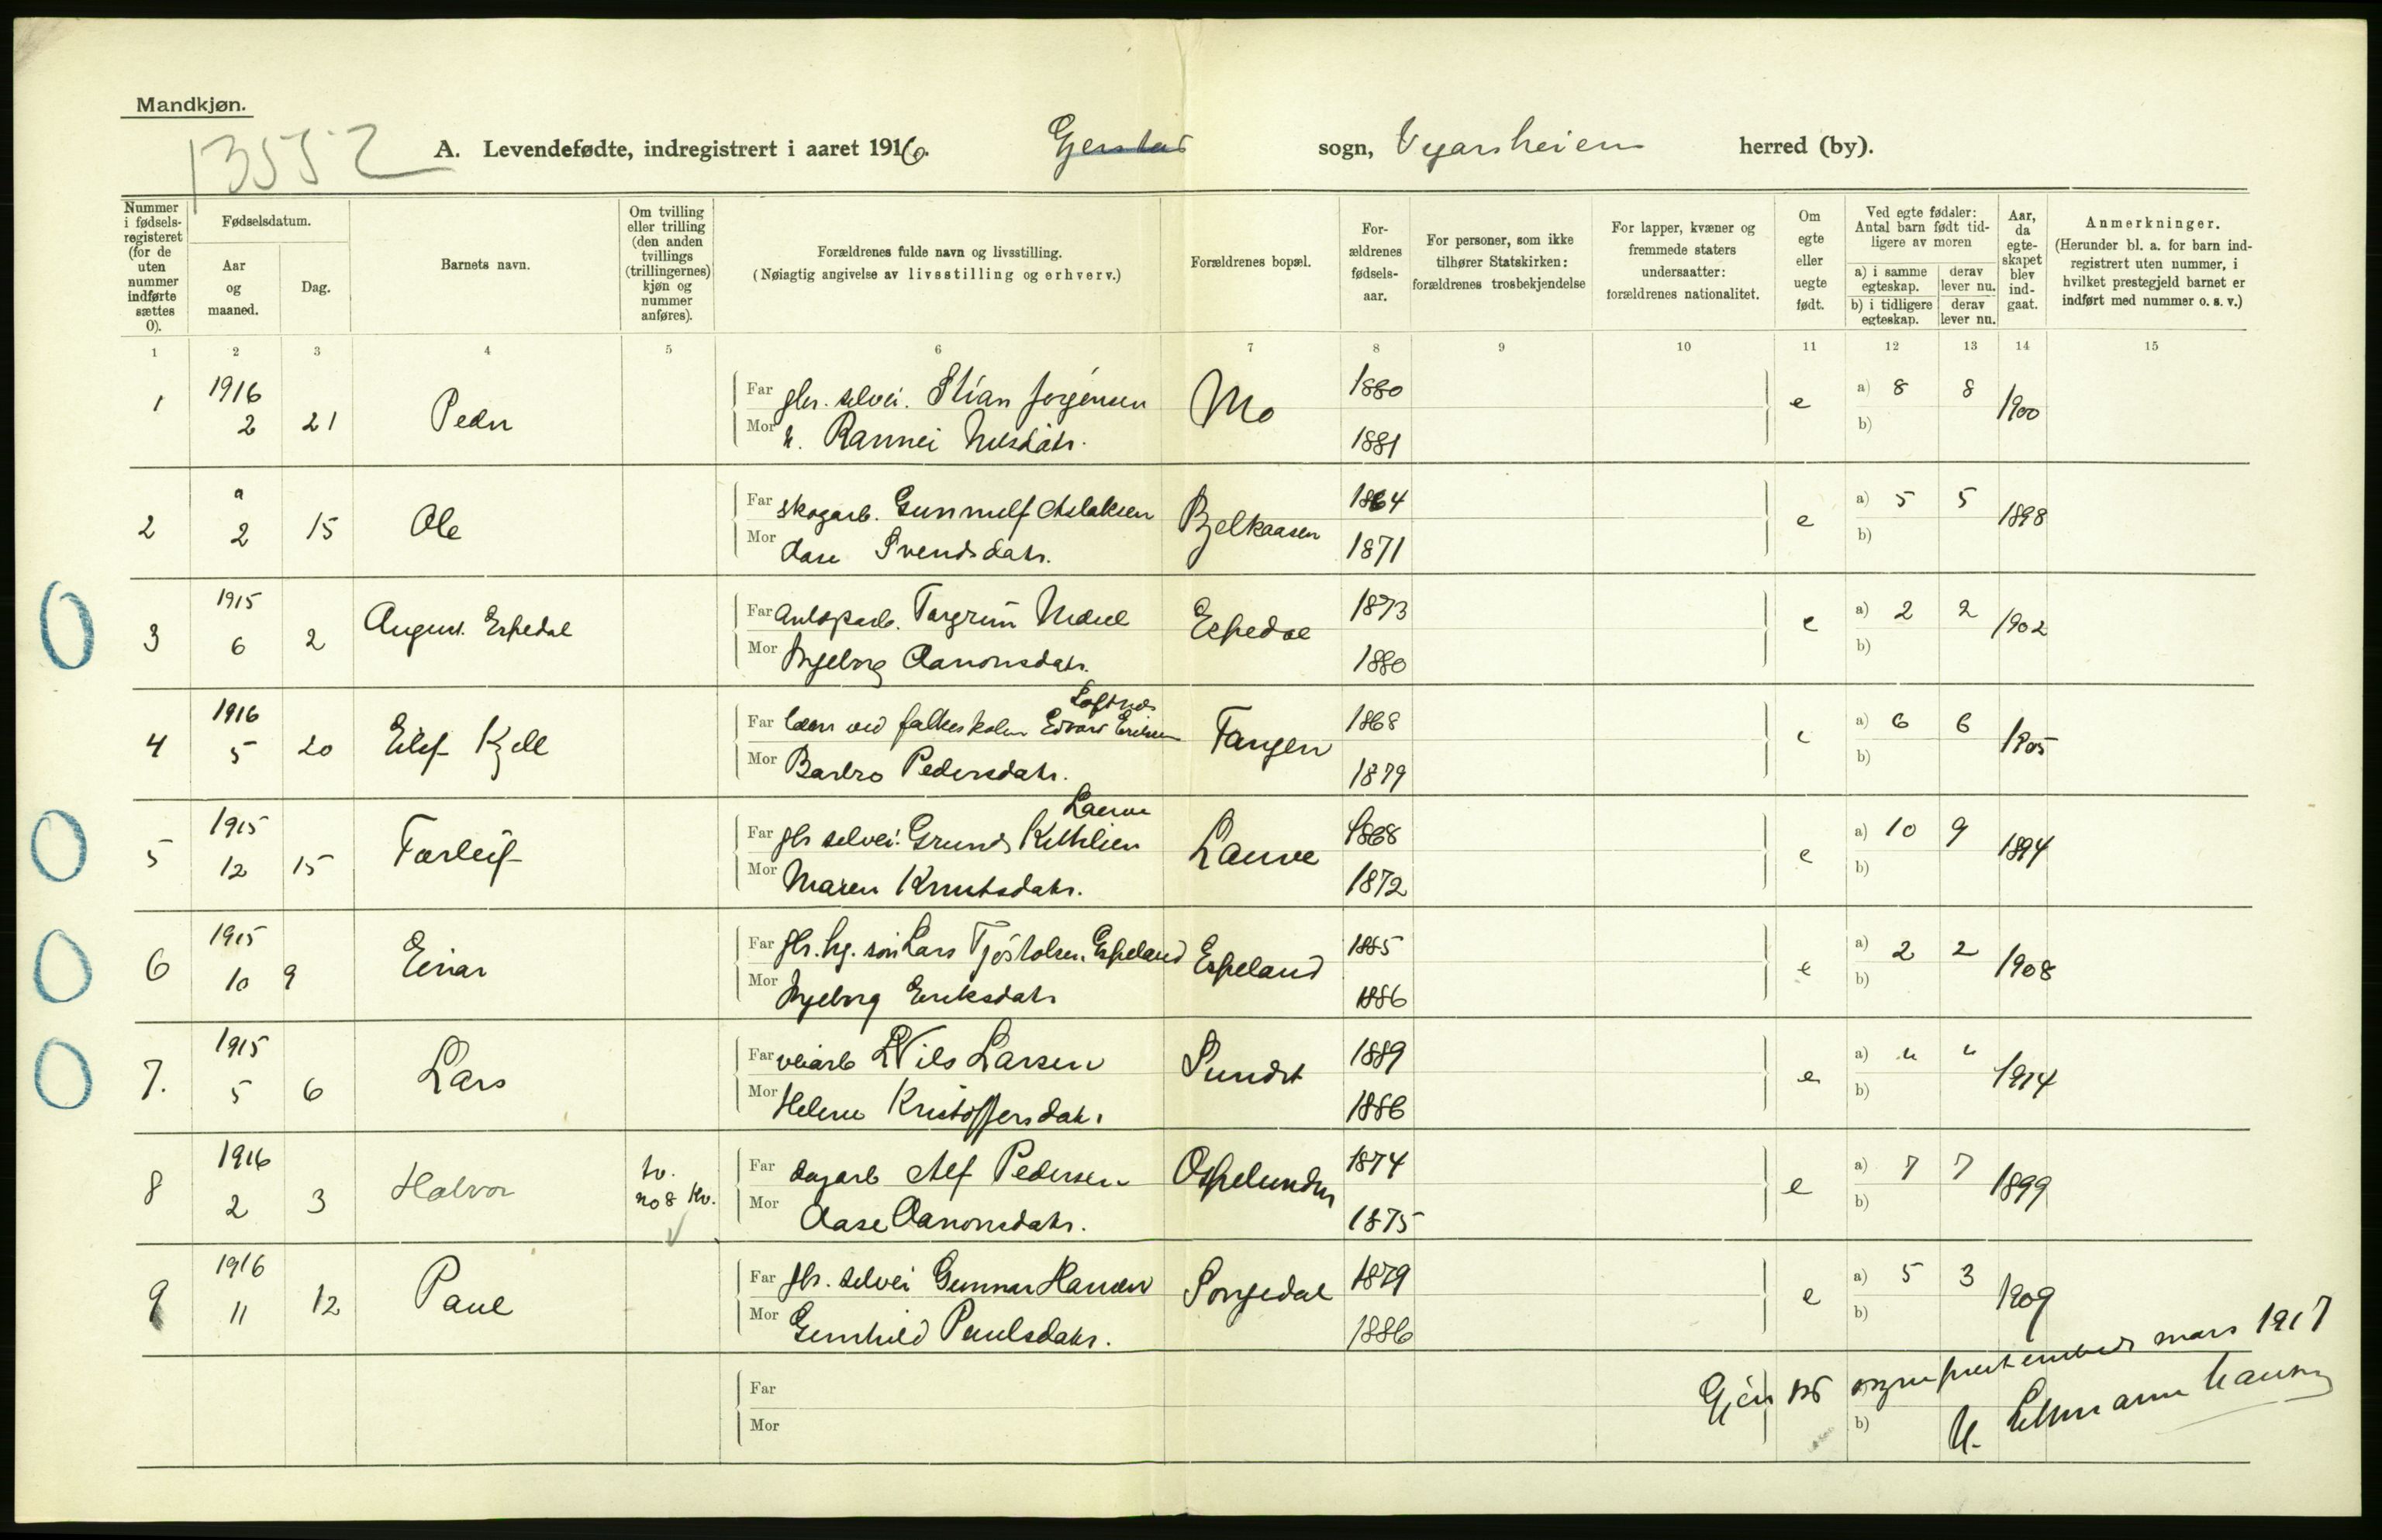 Mandkjøn.
13552
A. Levendefødte, indregistrert i aaret 1916. Gjerstad sogn, Vegarsheien herred (by).
Nummer i fødsels-registeret (for de uten nummer indførte sættes 0).
Fødselsdatum.
Aar og maaned.
Dag.
Barnets navn.
Om tvilling eller trilling (den anden tvillings (trillingernes) kjøn og nummer anføres).
Forældrenes fulde navn og livsstilling.
(Nøiagtig angivelse av livsstilling og erhverv.)
Forældrenes bopæl.
For-ældrenes fødsels-aar.
For personer, som ikke tilhører Statskirken: forældrenes trosbekjendelse
For lapper, kvæner og fremmede staters undersaatter: forældrenes nationalitet.
Om egte eller uegte født.
Ved egte fødsler: Antal barn født tid-ligere av moren
a) i samme egteskap.
derav lever nu.
b) i tidligere egteskap.
derav lever nu.
Aar, da egte-skapet blev ind-gaat.
Anmerkninger.
(Herunder bl. a. for barn ind-registrert uten nummer, i hvilket prestegjeld barnet er indført med nummer o. s. v.)
1 2 3 4 5 6 7 8 9 10 11 12 13 14 15
1 1916 2 21 Peder Far gbr. selvei. Stian Jørgensen Mo 1880 e a) 8 8 1900
Mor h. Rannei Nilsdatr. 1881 b)
2 " 2 15 Ole Far skogarb. Gunnulf Aslaksen Bjelkaasen 1864 e a) 5 5 1898
Mor Aase Svendsdatr. 1871 b)
0 3 1915 6 2 August Espedal Far Torgrim Espedal 1873 e a) 2 2 1902
Mor Ingeborg Aanonsdatr. 1880 b)
4 1916 5 20 Eilef Kjell Far lærer ved folkeskolen Edvard Eriksen Loftnes Tangen 1868 e a) 6 6 1905
Mor Barbro Pedersdatr. 1879 b)
0 5 1915 12 15 Tarleif Far gbr selvei. Kittilsen Lauve Lauve 1868 e a) 10 9 1894
Mor Maren Knutsdatr. 1872 b)
0 6 1915 10 9 Einar Far gbr. hg. søn Lars Tjøstolsen Espeland Espeland 1885 e a) 2 2 1908
Mor Ingeborg Eriksdatr 1886 b)
0 7. 1915 5 6 Lars Far veiarb Nils Larsen Sundet 1889 e a) " " 1914
Mor Helene Kristoffersdatr. 1886 b)
8 1916 2 3 Halvor tv. no 8 Kv. Far dagarb Alf Pedersen Ospelunden 1874 e a) 7 7 1899
Mor Aase Aanonsdatr. 1875 b)
9 1916 11 12 Paul Far gbr. selvei Gunnar Hansen Songedal 1879 e a) 5 3 1909
Mor Gunhild Paulsdatr. 1886 b)
Far
Mor b)
Gjerstad sogneprestembede mars 1917